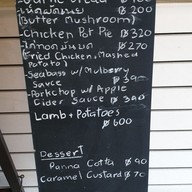 Garlic Bread ฿160
฿200
(Butter Mushroom)
-Chicken Pot Pie ฿320
-ไก่ทอดมันบด ฿270
(Fried Chicken+Mashed
Potato)
-Seabass w/ Mulberry
Sauce ฿390-
-Porkchop w/ Apple
Cider Sauce ฿340
Lamb+Potatoes
฿600
Dessert
Panna Cotta ฿90
Caramel Custard ฿70